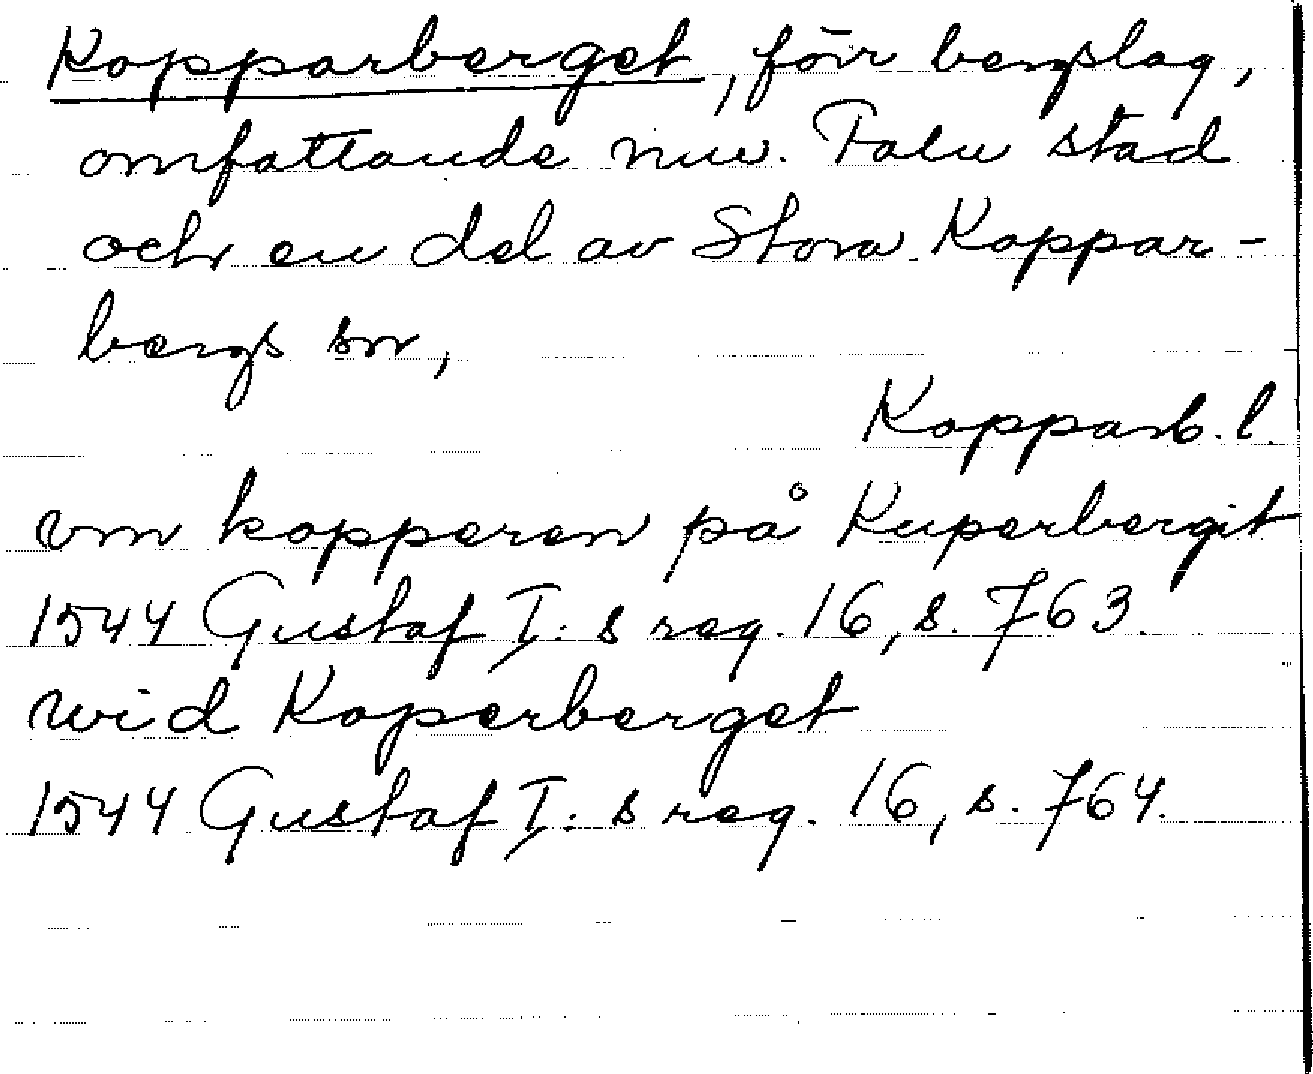 Kopparberget, förr bergslag,
omfattande nuv. Falu stad
och en del av Stora Koppar-
bergs sn,
Kopparb. l.
vm kopperen på Kuperbergit
1544 Gustaf I:s reg. 16, s. 763.
wid Koperberget
1544 Gustaf I:s reg. 16, s. 764.